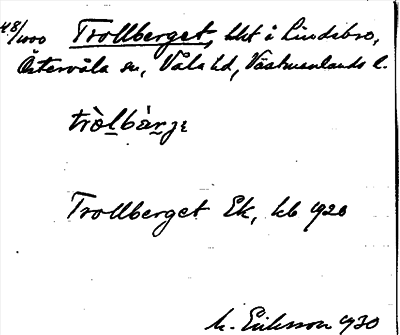 48/1000 Trollberget, lht i Lindsbro,
Östervåla sn, Våla hd, Västmanlands l.
tròlbàrjε
Trollberget Ek, kb 1920
M. Eriksson 1930